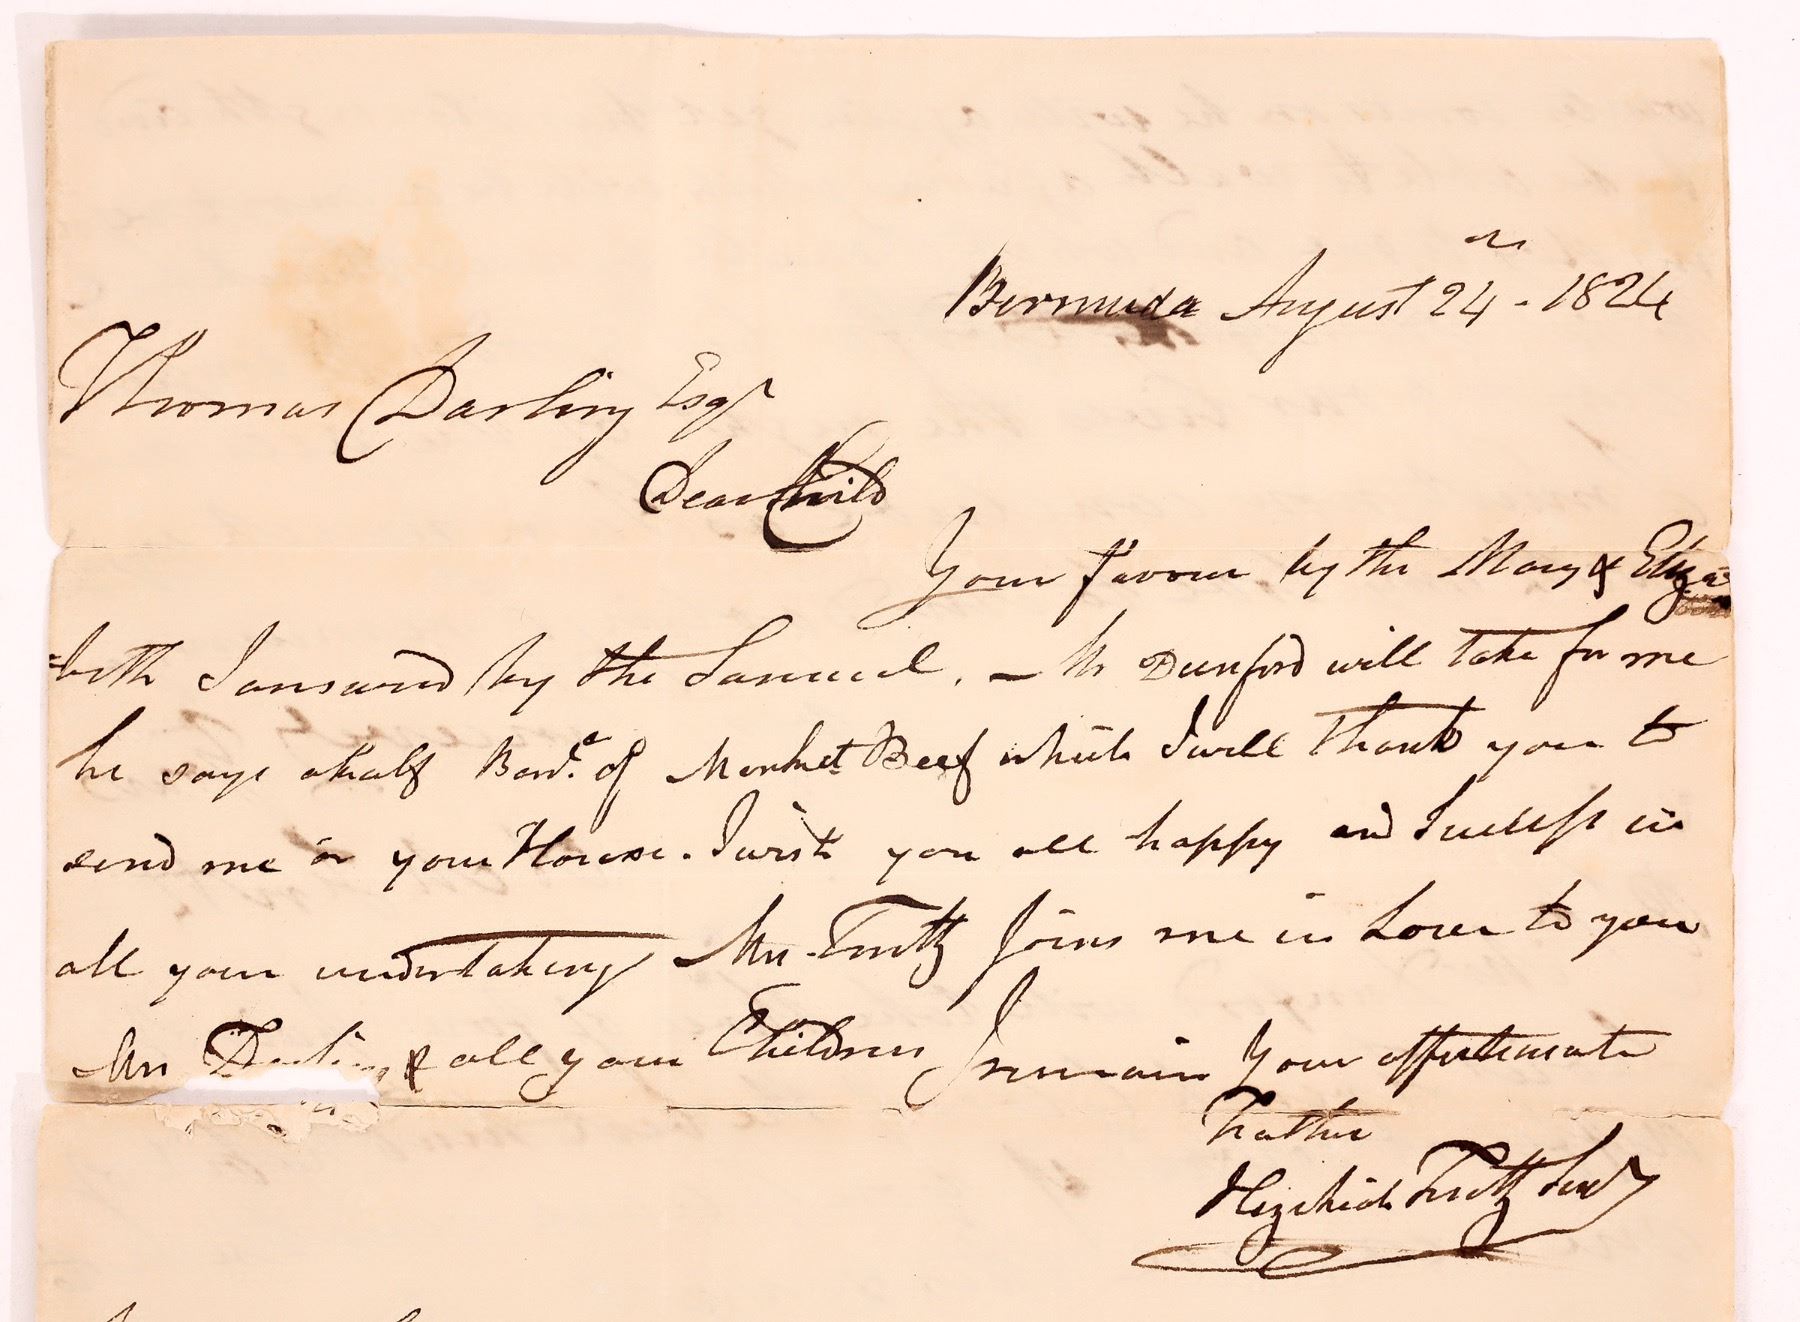 Bermuda August 24th - 1824
Thomas Darling Esqr
Dear Child
Your favour by the Mary & Eliza=
=beth I answered by the Samuel. - Mr Dunford will take for me
he says a half Barl. of Market Beef which I will thank you to
send me in your House. I wish you all happy and Success in
all your undertakings Mrs Frith Joins me in Love to you
Mrs Darling & all your Children I remain Your affectionate
Father
Hezekiah Frith Senr